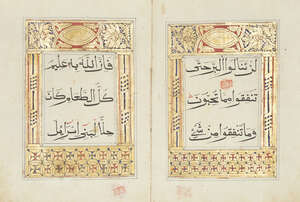 لن تنالوا البر حتى
تنفقوا مما تحبون
وما تنفقوا من شئ
فان الله به عليم
كل الطعام كان
حلا لبنى اسراءيل